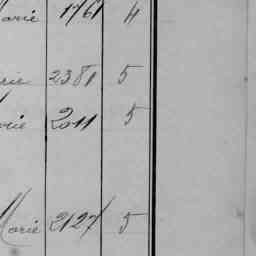 Marie 1761 4
rie 2381 5
rie 2011 5
Marie 2127 5